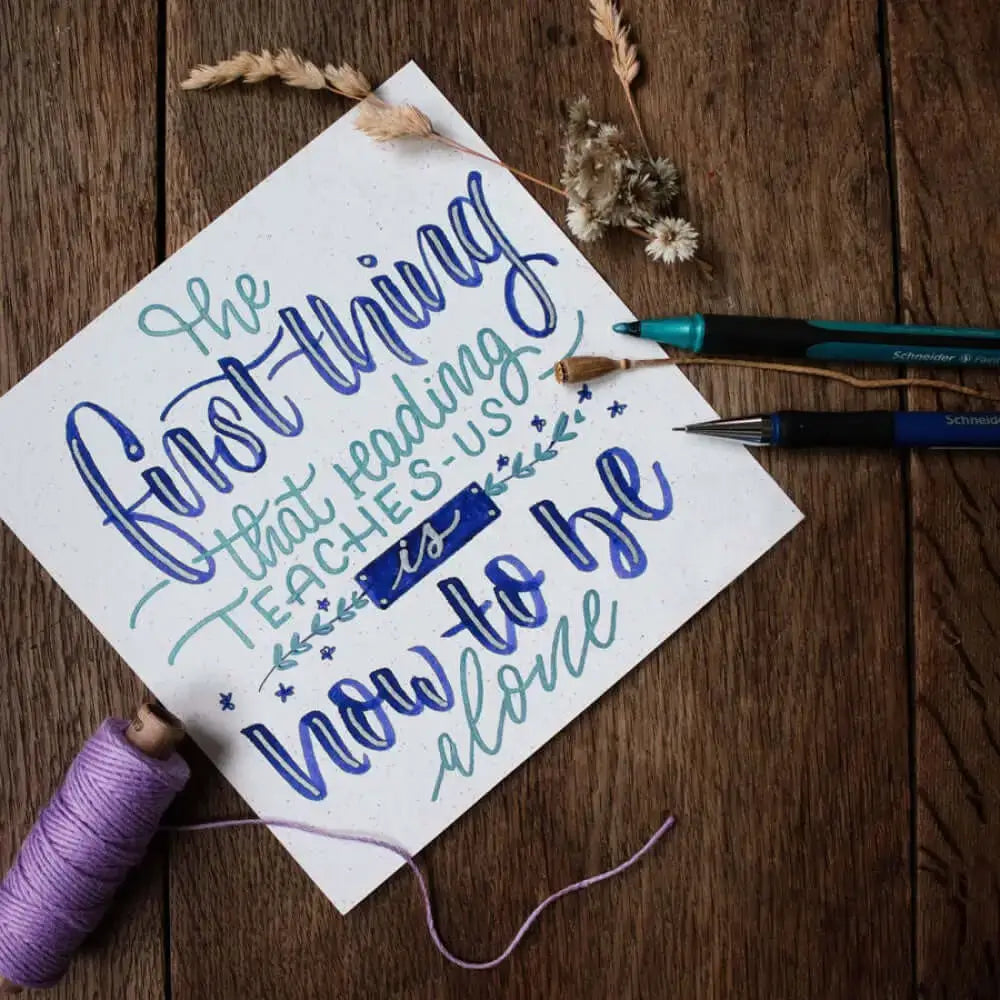 The
first thing
that reading
TEACHES-US
is
how to be
alone
Schneider
Schneider